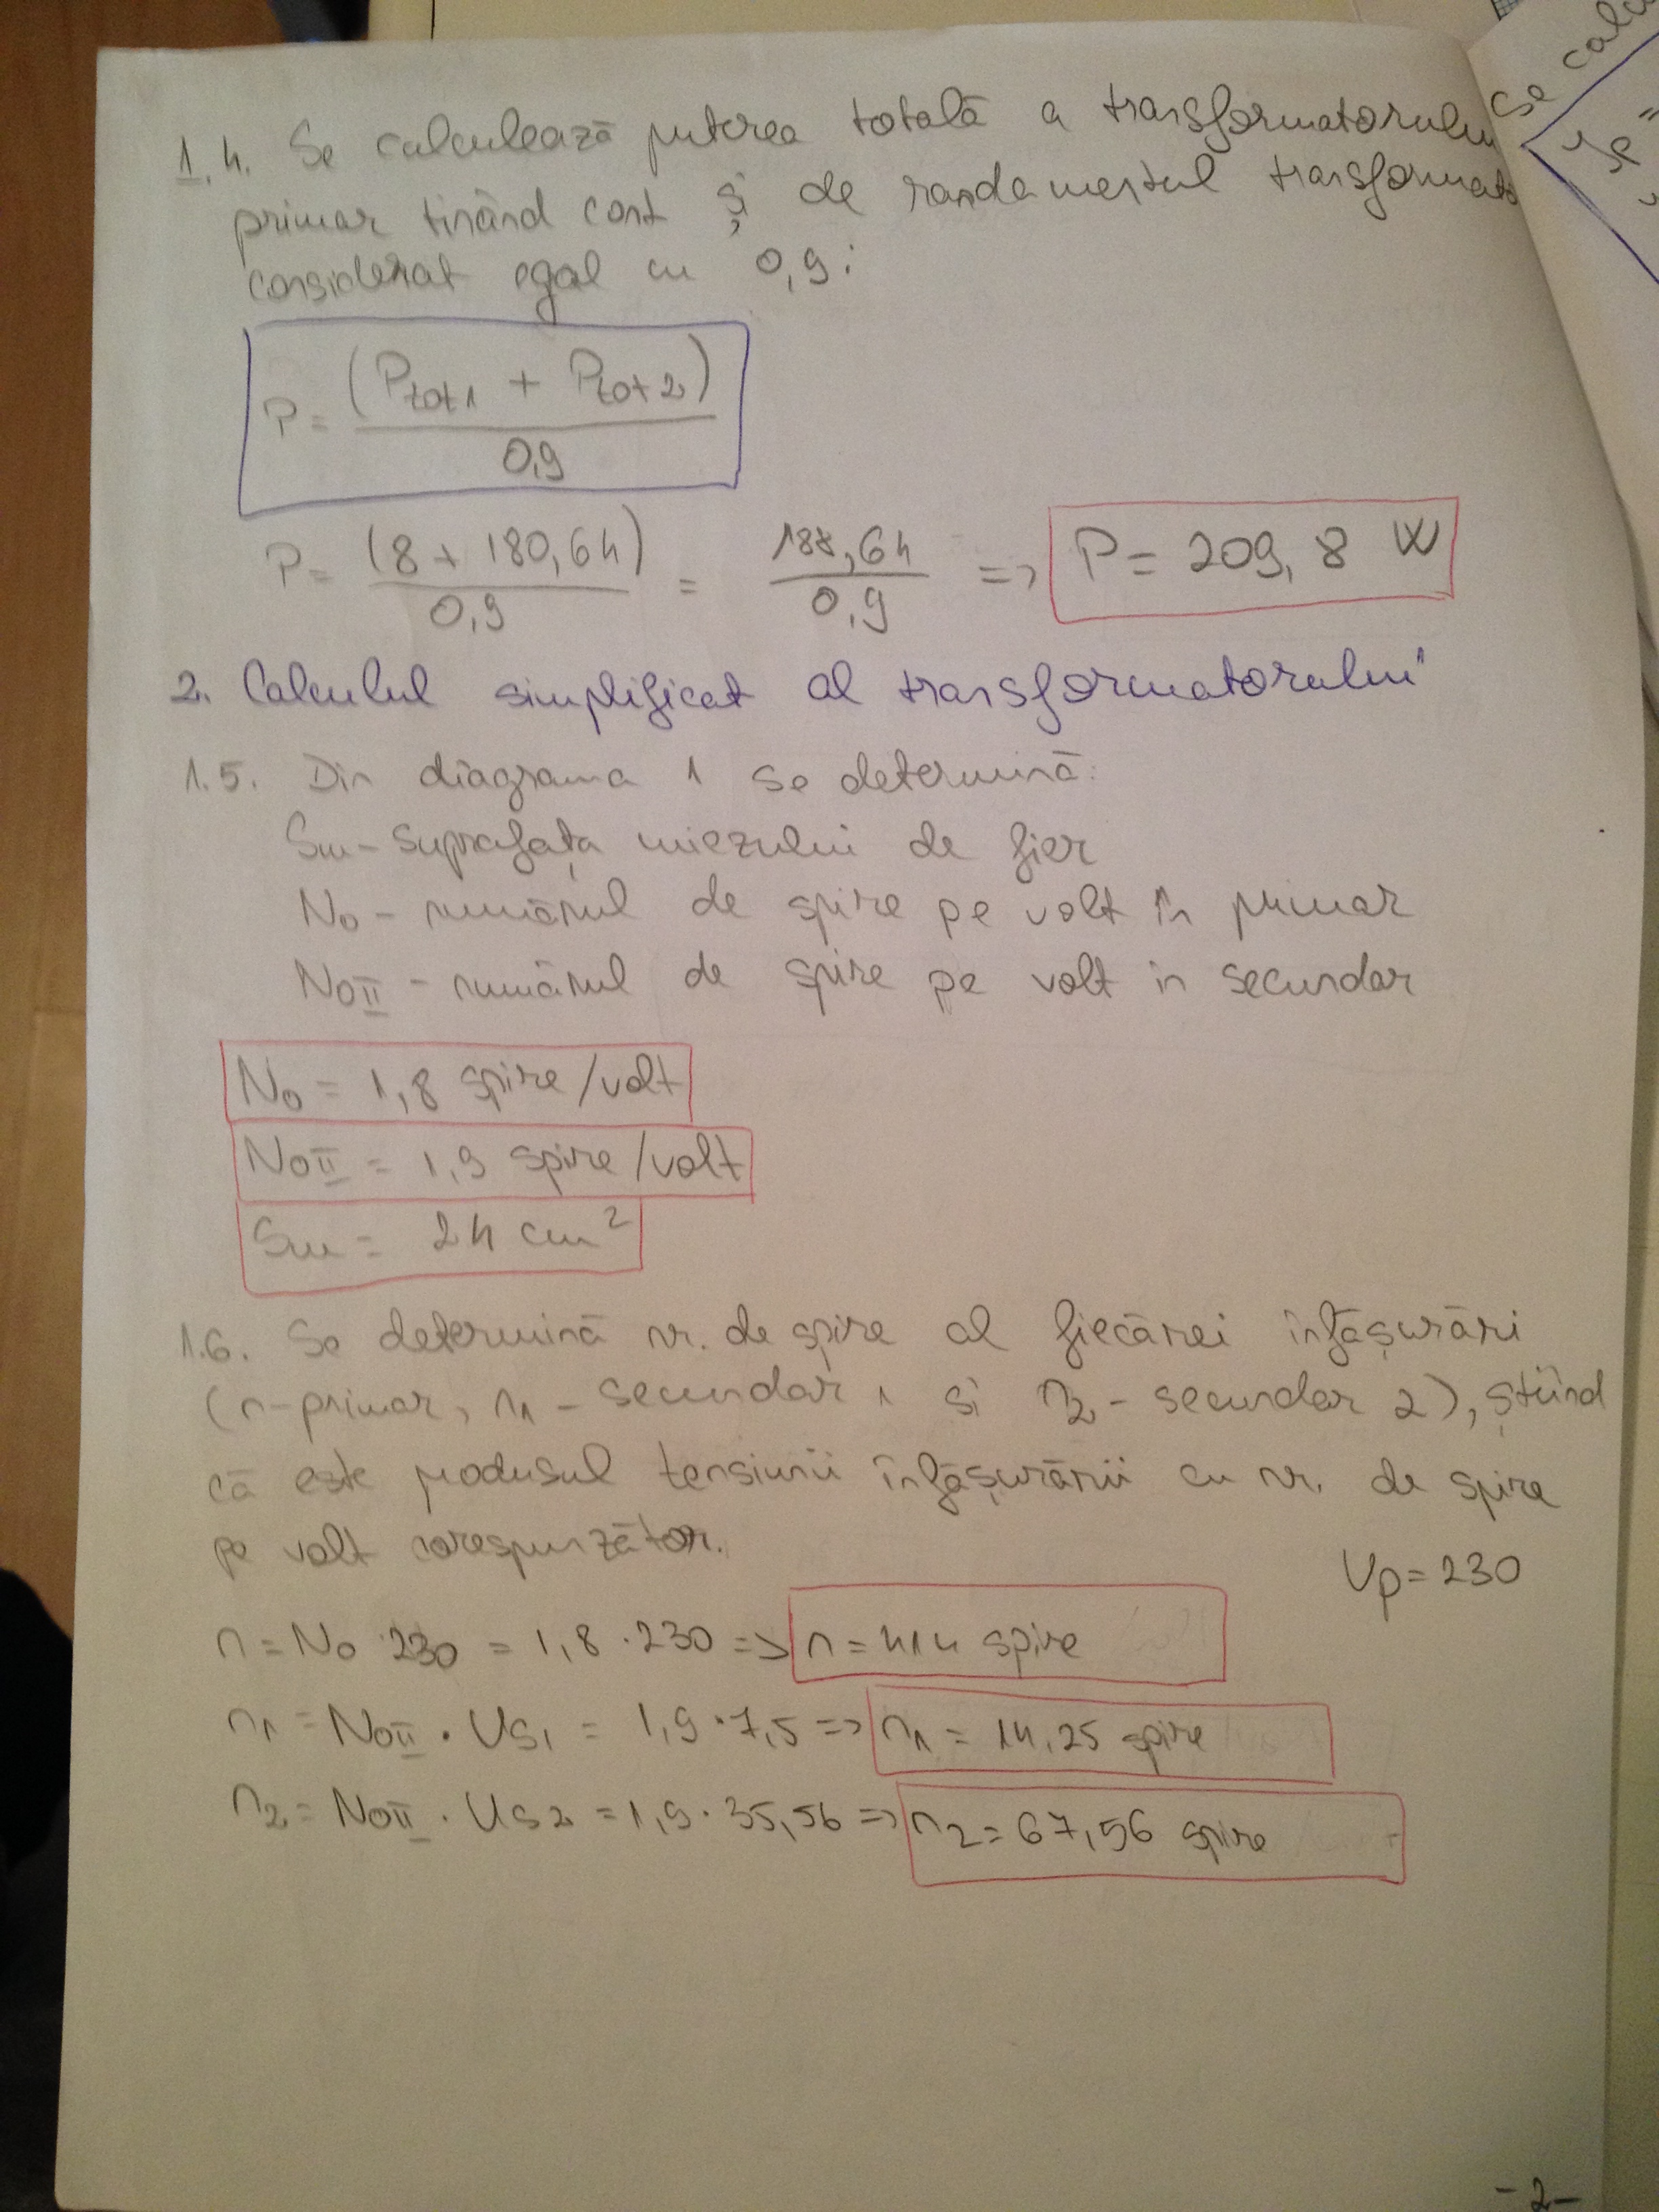 1.4. Se calculează puterea totală a transformatorului
primar tinând cont și de randamentul transformato
considerat egal cu 0,9:
P = (Ptot1 + Ptot2) / 0,9
P = (8 + 180,64) / 0,9 = 188,64 / 0,9 => P = 209,8 W
2. Calculul simplificat al transformatorului
1.5. Din diagrama 1 se determină:
Sm - suprafața miezului de fier
No - numărul de spire pe volt în primar
NoII - numărul de spire pe volt in secundar
No = 1,8 spire/volt
NoII = 1,9 spire/volt
Sm = 24 cm²
1.6. Se determină nr. de spire al fiecărei înfășurări
(n-primar, n1 - secundar 1 si n2 - secundar 2), știind
că este produsul tensiunii înfășurării cu nr. de spire
pe volt corespunzător.
Up = 230
n = No · 230 = 1,8 · 230 => n = 414 spire
n1 = NoII · Us1 = 1,9 · 7,5 => n1 = 14,25 spire
n2 = NoII · Us2 = 1,9 · 35,56 => n2 = 67,56 spire
- 2 -
Se calcu